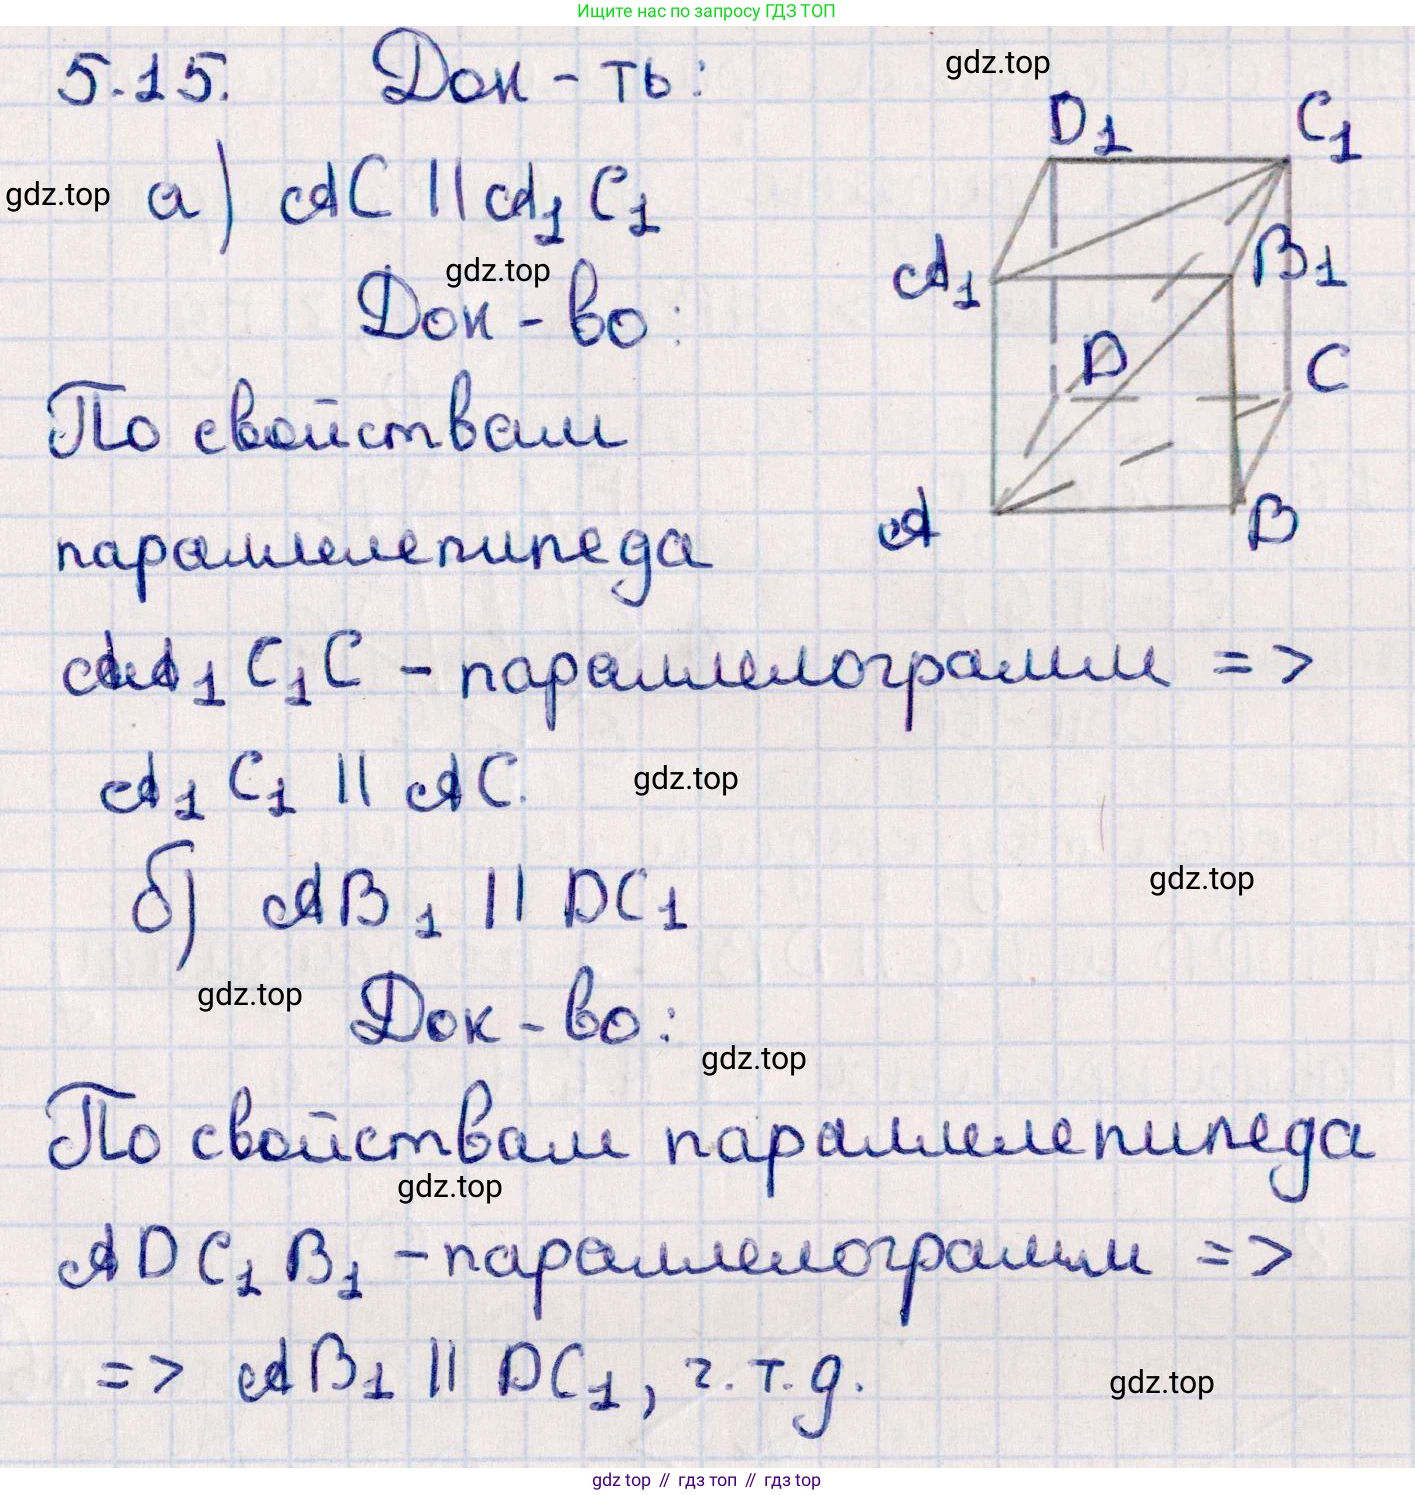 Ищите нас по запросу ГДЗ ТОП
5.15. Док-ть:
gdz.top
D1 C1
gdz.top
а) AC || A1C1
gdz.top
A1 B1
Док-во:
D C
По свойствам
A B
параллелепипеда
AA1C1C - параллелограмм =>
A1C1 || AC.
gdz.top
б) AB1 || DC1
gdz.top
gdz.top
Док-во:
gdz.top
По свойствам параллелепипеда
gdz.top
ADC1B1 - параллелограмм =>
=> AB1 || DC1, ч.т.д.
gdz.top
gdz top // гдз топ // гдз top